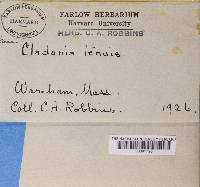 FARLOW HERBARIUM
Harvard University
HERB. C. A. ROBBINS
FARLOW HERBARIUM
HARVARD
UNIVERSITY
Cladonia tenuis
Wareham, Mass.
Coll. C. A. Robbins. 1926.